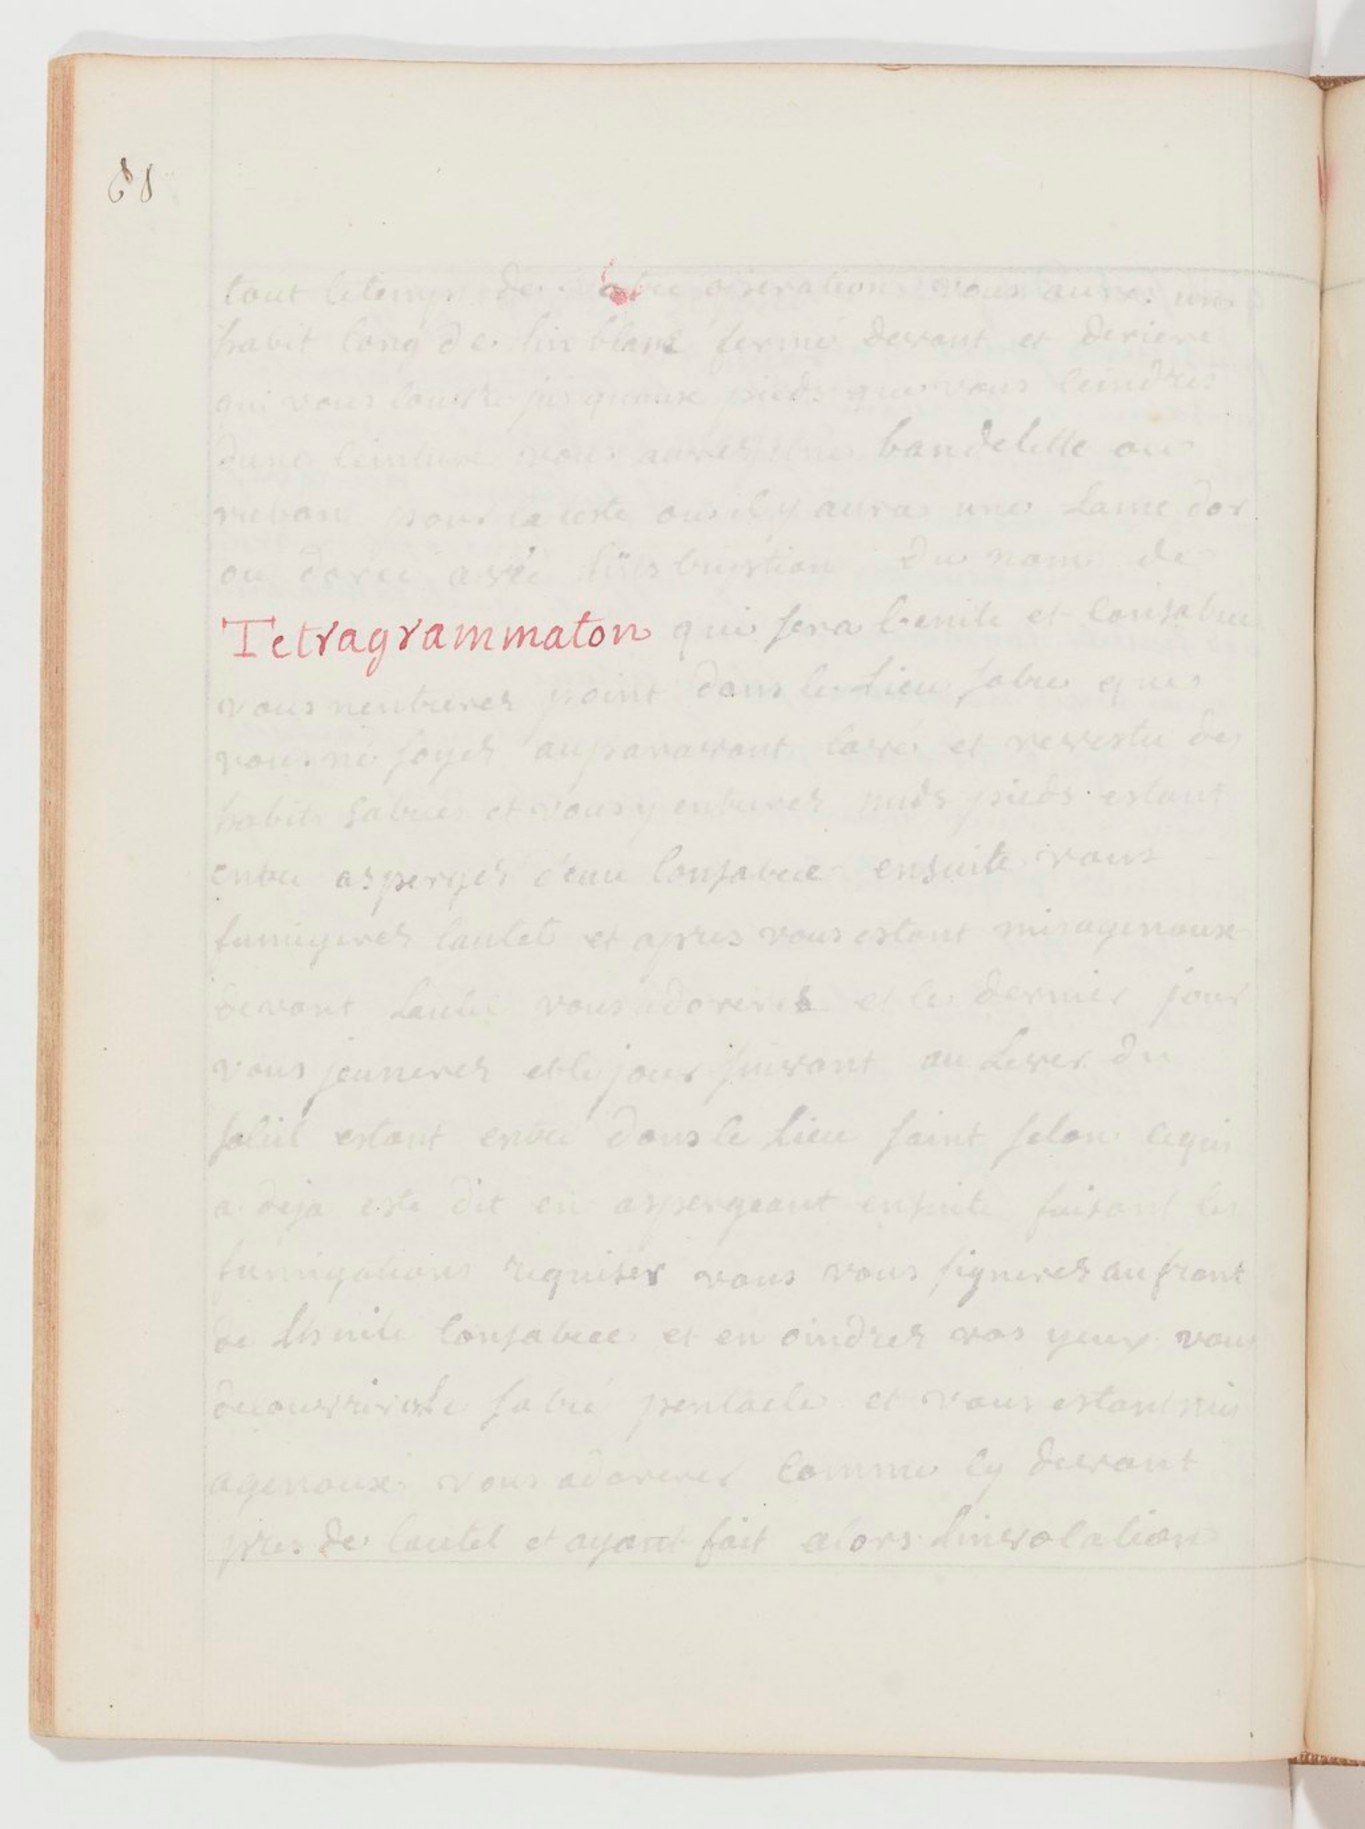 68
tout letemps de vostre operation vous aures un
habit long de lin blanc fermé devant et deriere
qui vous couvre jusquaux pieds que vous ceindres
dune ceinture vous aurez une bandelette ou
pour la teste ou il y aura une Lame dor
ou dorée avec du nom de
Tetragrammaton qui sera benite et consacree
vous nentrerez point dans le Lieu sacré que
vous ne soyez auparavant lavé et revestu des
habits sacrés et vous y entrerez nuds pieds estant
entré asperges deau consacree ensuite vous
fumigerez lautel et apres vous estant mis agenoux
devant Lautel vous adorerez et le dernier jour
vous jeunerez et le jour suivant au Lever du
soleil estant entré dans le Lieu saint selon cequi
a deja esté dit en aspergeant ensuite faisant les
fumigations requises vous vous signerez au front
de Lhuile consacree et en oindrez vos yeux vous
decouvrirez le sacré pentacle et vous estant mis
agenoux vous adorerez comme cy devant
pres de lautel et ayant fait alors Linvolation